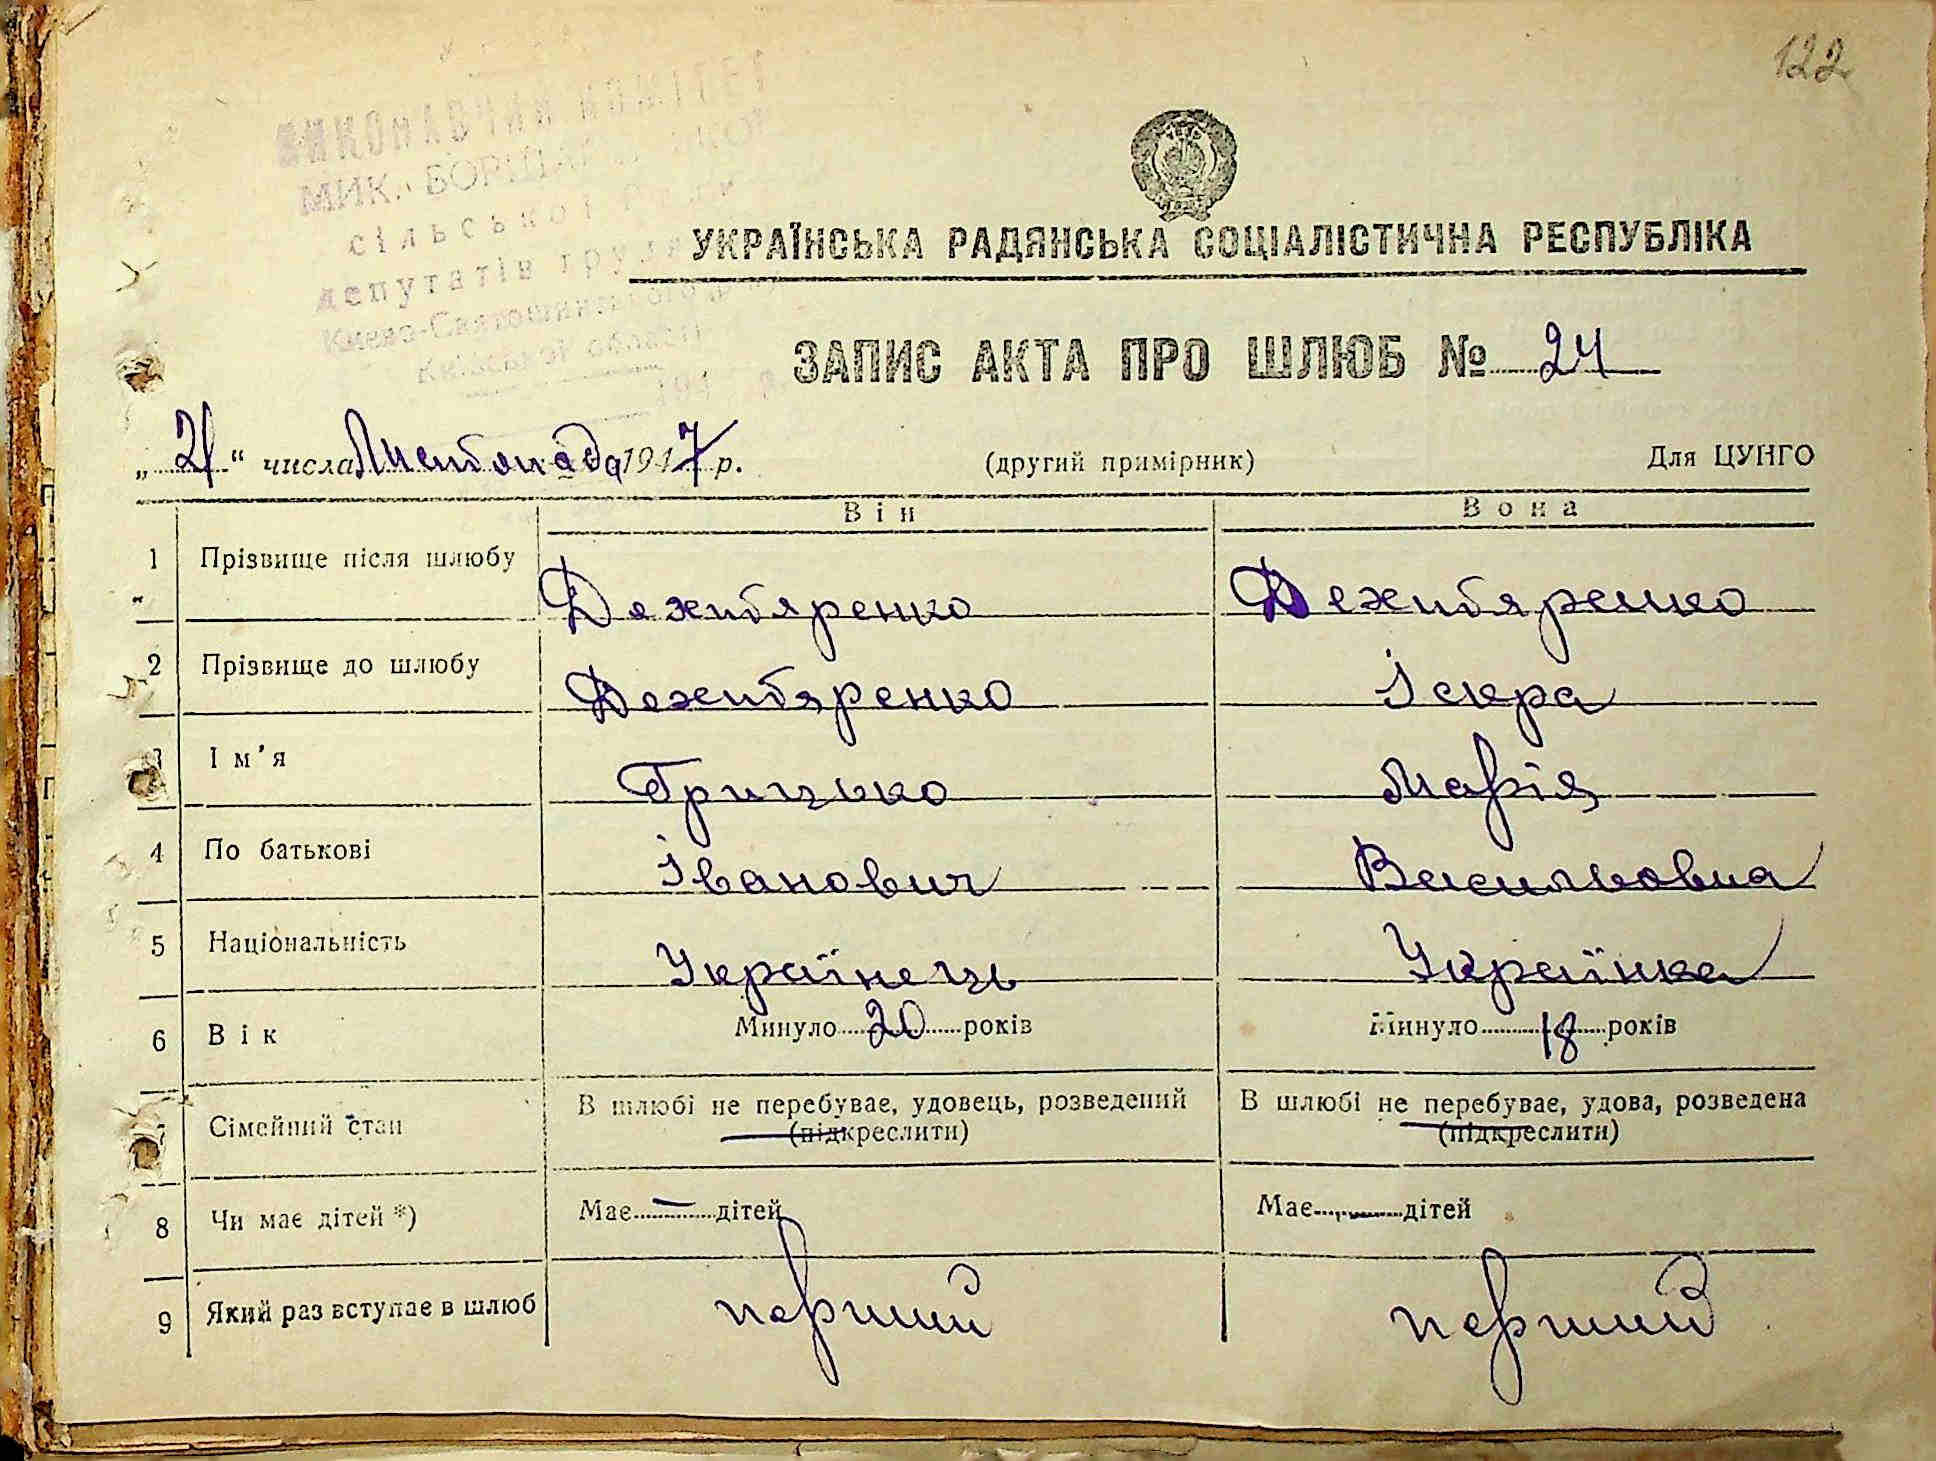 122
ВИКОНАВЧИЙ КОМІТЕТ
МИК. БОРЩАГІВСЬКОЇ
сільської Ради
депутатів труд
Києво-Святошинського р-ну
Київської області
194 р.
УКРАЇНСЬКА РАДЯНСЬКА СОЦІАЛІСТИЧНА РЕСПУБЛІКА
ЗАПИС АКТА ПРО ШЛЮБ № 24
„21“ числа Листопада 1947 р. (другий примірник) Для ЦУНГО
Він Вона
1 Прізвище після шлюбу Дехтяренко Дехтяренко
2 Прізвище до шлюбу Дехтяренко Іскра
3 Ім'я Грицько Марія
4 По батькові Іванович Васильовна
5 Національність Українець Українка
6 Вік Минуло 20 років Минуло 18 років
7 Сімейний стан В шлюбі не перебуває, удовець, розведений В шлюбі не перебуває, удова, розведена
(підкреслити) (підкреслити)
8 Чи має дітей *) Має — дітей Має — дітей
9 Який раз вступає в шлюб перший перший